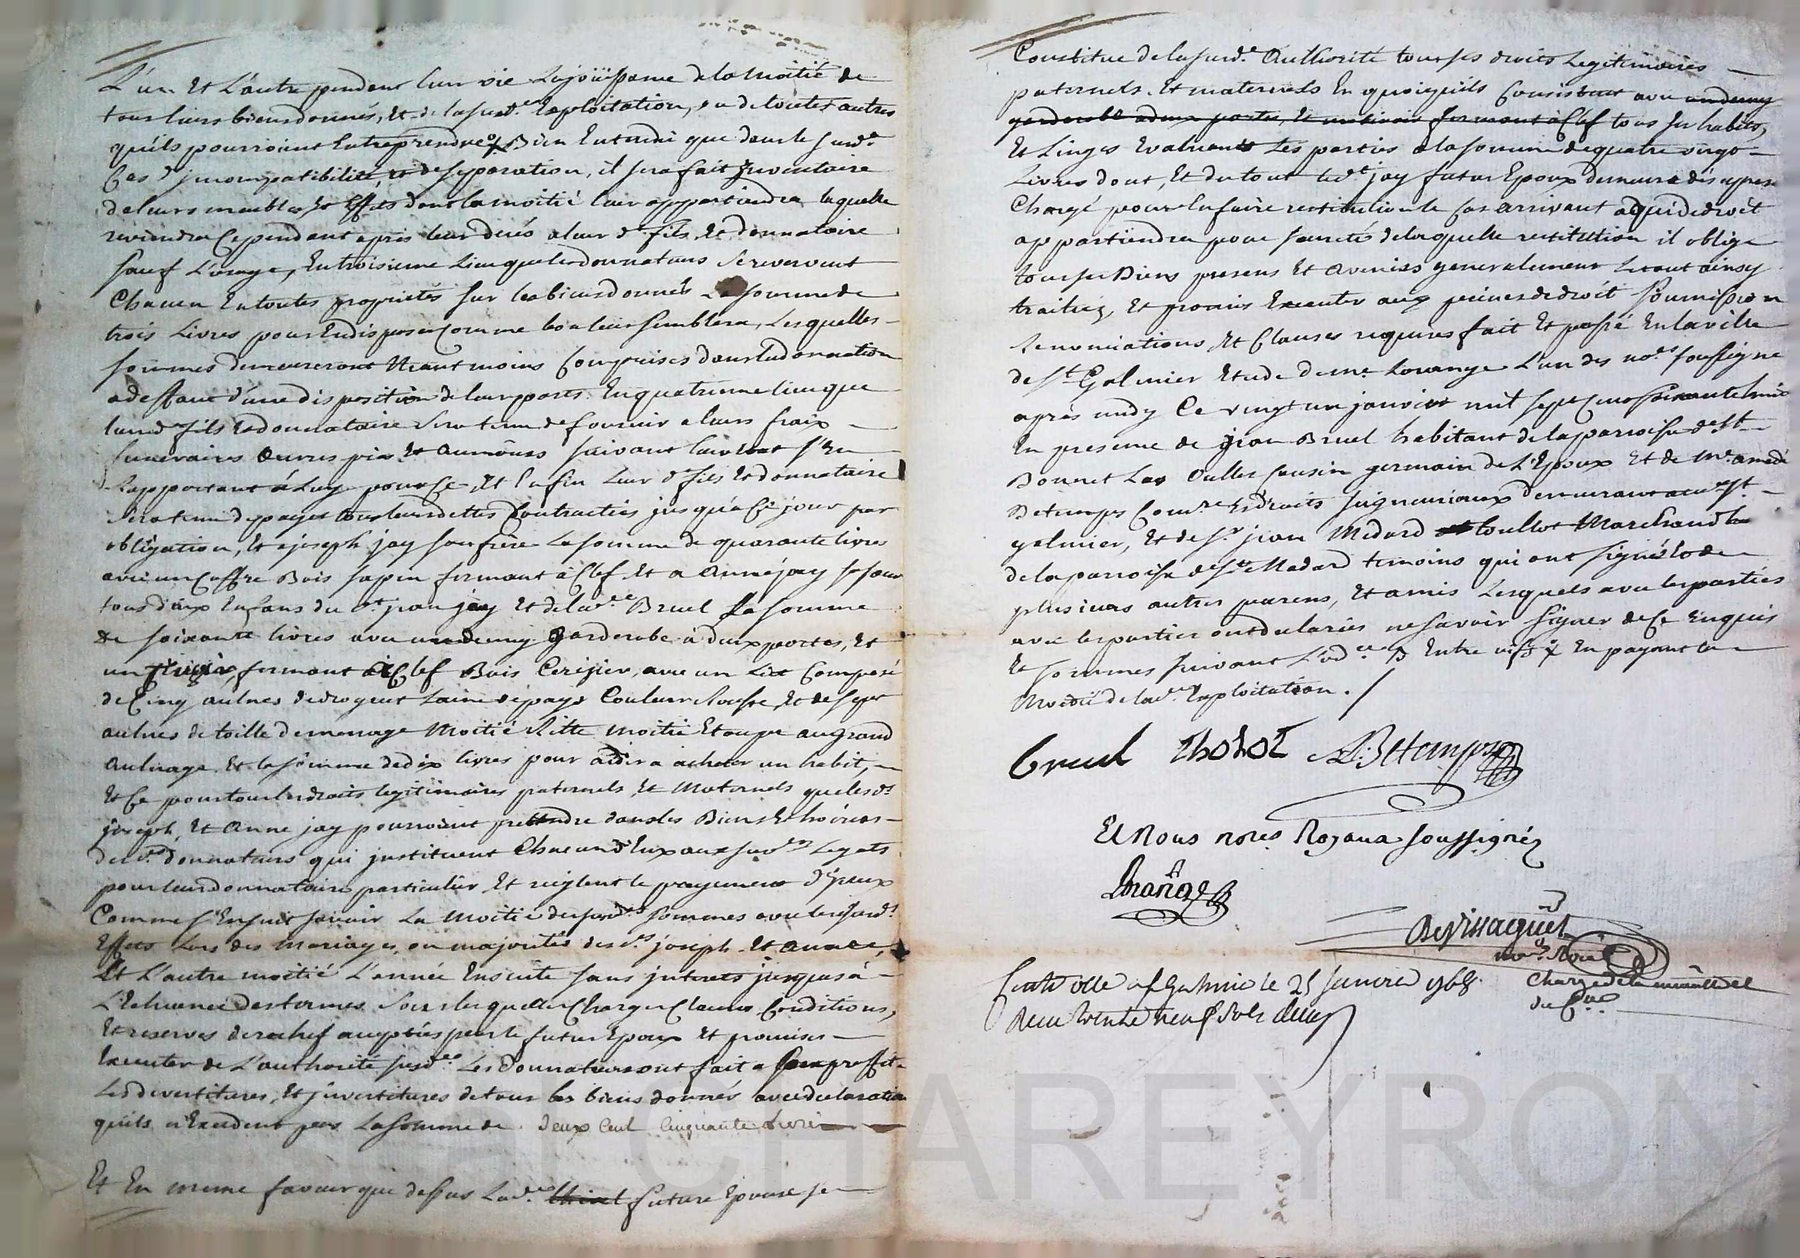 L'un Et L'autre pendent leur vie La joüissance de la Moitié de
tous leurs biens donnés, Et de la susd.e Exploitation, ou de toutes autres
quils pourroint Entreprendre Bien Entendu que dans le susd.
Cas d'jncompatibilité, de separation, il sera fait Jnventaire
de leurs meubles, Et Effets dont la moitié leur appartiendra laquelle
reviendra Cependant apres leur deces a leur d. fils, Et donnataire
sauf L'usage, En troisieme Lieu que les donnateurs Se reservent
Chacun En toutes proprietés sur les biens donnés La somme de
trois Livres pour En disposer Comme bon leur semblera, Lesquelles
sommes demeureront Neantmoins Comprises dans la donnation
a deffaut d'une disposition de leur parts. En quatrieme lieu que
leur d. fils Et donnataire Sera tenu de fournir a leurs fraix
funeraires Oeuvres pies Et Aumônes suivant leur s'En
Rapportant á Luy pour Ce, Et Enfin Leur d. fils Et donnataire
Sera tenu de payer tous leurs dettes Contractées jusqu'á Ce jour par
obligation, Et a joseph jay son frere La somme de quarante livres
avec un Coffre Bois sapin fermant à Clef, Et a Anne jay sa soeur
tous deux Enfans du d.t jean jay Et de la d.e Breul La somme
de soixante livres avec un demy Garderobe à deux portes, Et
un fermant à Clef Bois Cerizier, avec un Lit Composé
de Cinq aulnes de droguet Laine de pays Couleur Rousse, Et de sept
aulnes de toille de menage Moitié Ritte moitié Etoupe au grand
Aulnage. Et la somme de dix livres pour aider a acheter un habit,
Et Ce pour tous les droits legitimaires paternels, Et Maternels que lesd.s
joseph, Et Anne jay pourroient prettendre dans les Biens Et hoiries
des d.s donnateurs qui jnstituent Chacun d'Eux aux susd.s Legats
pour leur donnataire particulier, Et reiglent le payement d'jceux
Comme s'Ensuit savoir La Moitié des susd.es sommes avec les susd.s
Effets Lors des Mariages, ou majorités des d.s joseph. Et Anne,
Et L'autre moitié L'année Ensuite sans jnterets jusques à
L'Echeance des termes. Sous lesquelles Charges Clauses Conditions,
Et reserves derechef acceptées par le futur Epoux Et promises
Executer de L'authorité susd.e Les Donnateurs ont fait a son proffit
Les divestitures, Et jnvestitures de tous les biens donnés avec declaration
quils n'Excedent pas La somme de deux Cent Cinquante Livres
Et En meme faveur que dessus La d.e future Epouse se
Constitue de la susd.e Authorité tous ses droits Legitimaires
paternels. Et maternels En quoiqu'ils Consistent avec un demy
garderobe a deux portes, Et fermant à Clef tous ses habits,
Et Linges Evalués Les parties a la somme de quatre vingt
Livres dont, Et du tout le d.t jay futur Epoux demeure des apresent
Chargé pour En faire restitution le Cas arrivant a qui de droit
appartiendra pour sureté de laquelle restitution il oblige
tous ses Biens presens Et Avenirs generalement Le tout ainsy
traitté, Et promis Executer aux peines de droit soumission
Renonciations, Et Clauses requises fait Et passé En la ville
de S.t Galmier Etude de m.e Lorange L'un des no.res soussigné
après midy Ce vingt un janvier mil sept cens soixante huit
En presence de jean Breul habitant de la parroisse de St
Bonnet Les Oulles Cousin germain de L'Epoux Et de M.e amedé
Betemps Com.re Es droits seigneuriaux demeurant aud. St
galmier, Et de S.r jean Medard thollot Marchand
de la parroisse de St Medard temoins qui ont signés Et de
plusieurs autres parens, Et amis Lesquels avec les parties
avec les parties ont declarés ne savoir signer de Ce Enquis
Et sommés suivant L'ord.ce Entre En payant la
Moitié de la d.e Exploitation.
breul thollot Betemps
Et Nous no.res Royaux soussignés
Lorange
DeVissaguet
no.re Royal
Chargé de la minutte
Controllé a St Galmier le 25 Janvier 1768.
Reçu trente neuf sols
CHAREYRON